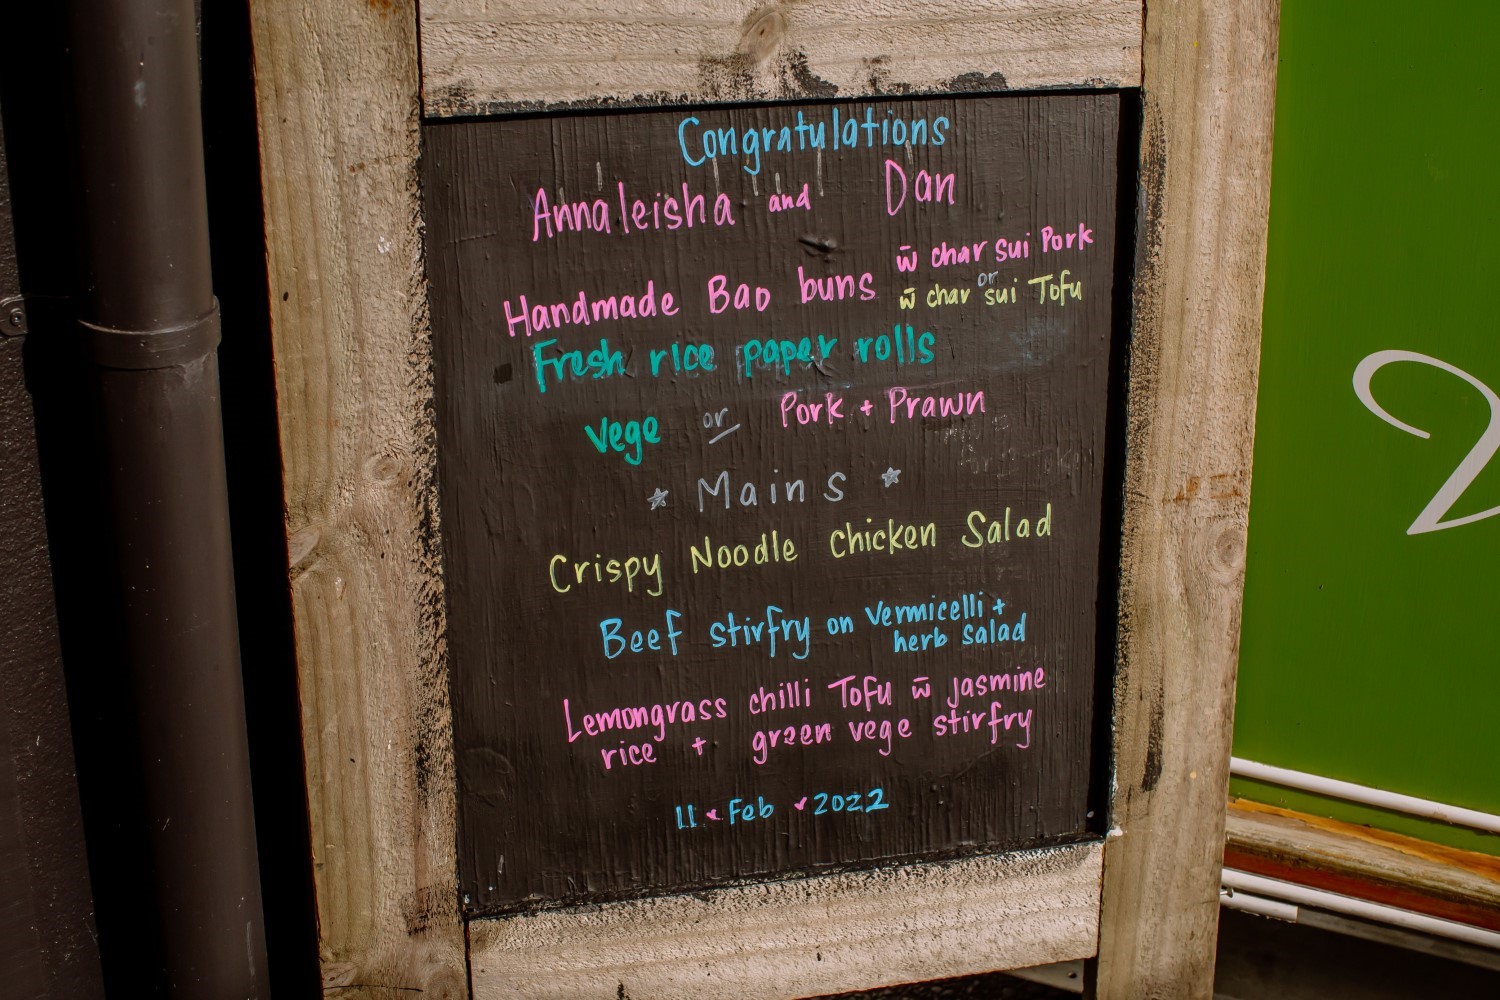 Congratulations
Annaleisha and Dan
Handmade Bao buns w̄ char sui Pork
or
w̄ char sui Tofu
Fresh rice paper rolls
Vege or Pork + Prawn
☆ Mains ☆
Crispy Noodle Chicken Salad
Beef stirfry on Vermicelli +
herb Salad
Lemongrass chilli Tofu w̄ jasmine
rice + green vege stirfry
11 Feb 2022